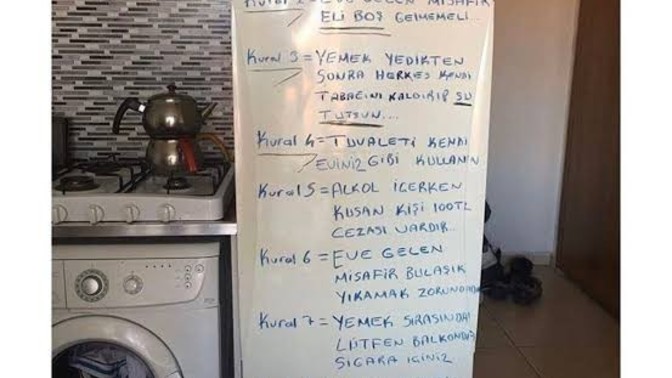 EVE GELEN MİSAFİR
ELİ BOŞ GELMEMELİ...
Kural 3 = YEMEK YEDİKTEN
SONRA HERKES KENDİ
TABAĞINI KALDIRIP SU
TUTSUN....
Kural 4 = TUVALETİ KENDİ
EVİNİZ GİBİ KULLANIN
Kural 5 = ALKOL İÇERKEN
KUSAN KİŞİ 100TL
CEZASI VARDIR...
Kural 6 = EVE GELEN
MİSAFİR BULAŞIK
YIKAMAK ZORUNDADIR
Kural 7 = YEMEK SIRASINDA
LÜTFEN BALKONDA
SİGARA İÇİNİZ